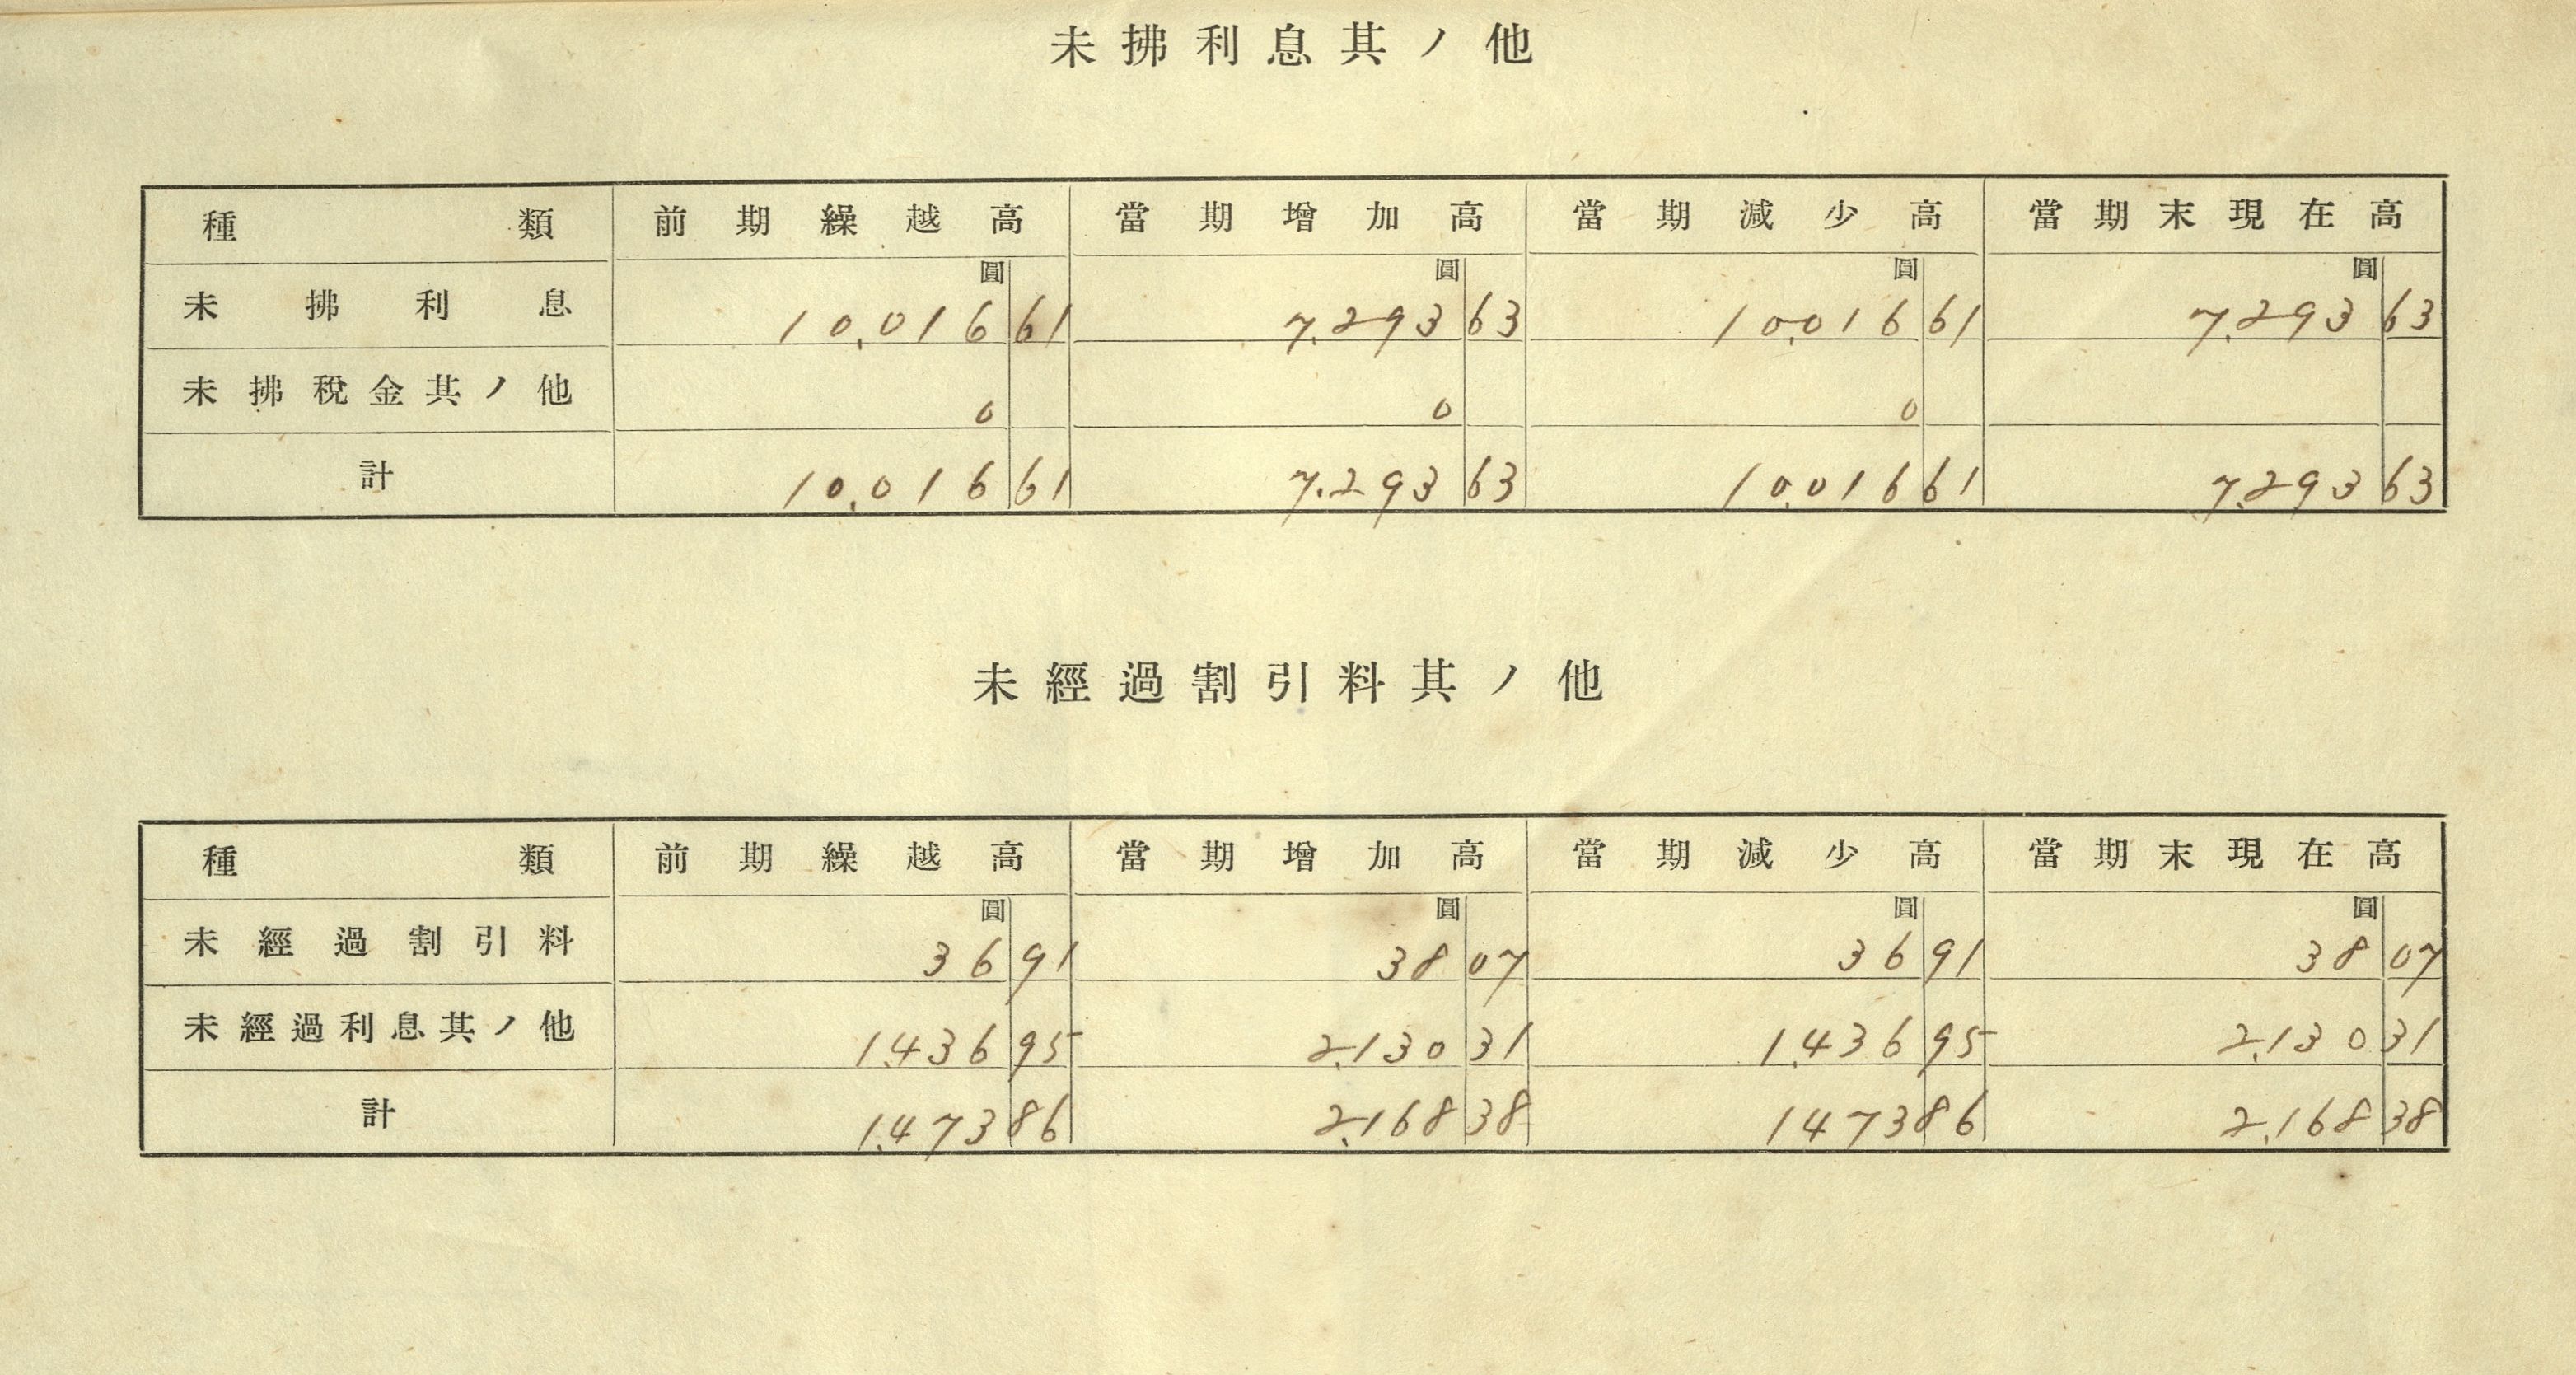 未拂利息其ノ他
種類 前期繰越高 當期增加高 當期減少高 當期末現在高
圓 圓 圓 圓
未拂利息 10,016 61 7,293 63 10,016 61 7,293 63
未拂稅金其ノ他 0 0 0
計 10,016 61 7,293 63 10,016 61 7,293 63
未經過割引料其ノ他
種類 前期繰越高 當期增加高 當期減少高 當期末現在高
圓 圓 圓 圓
未經過割引料 36 91 38 07 36 91 38 07
未經過利息其ノ他 1,436 95 2,130 31 1,436 95 2,130 31
計 1,473 86 2,168 38 1473 86 2,168 38